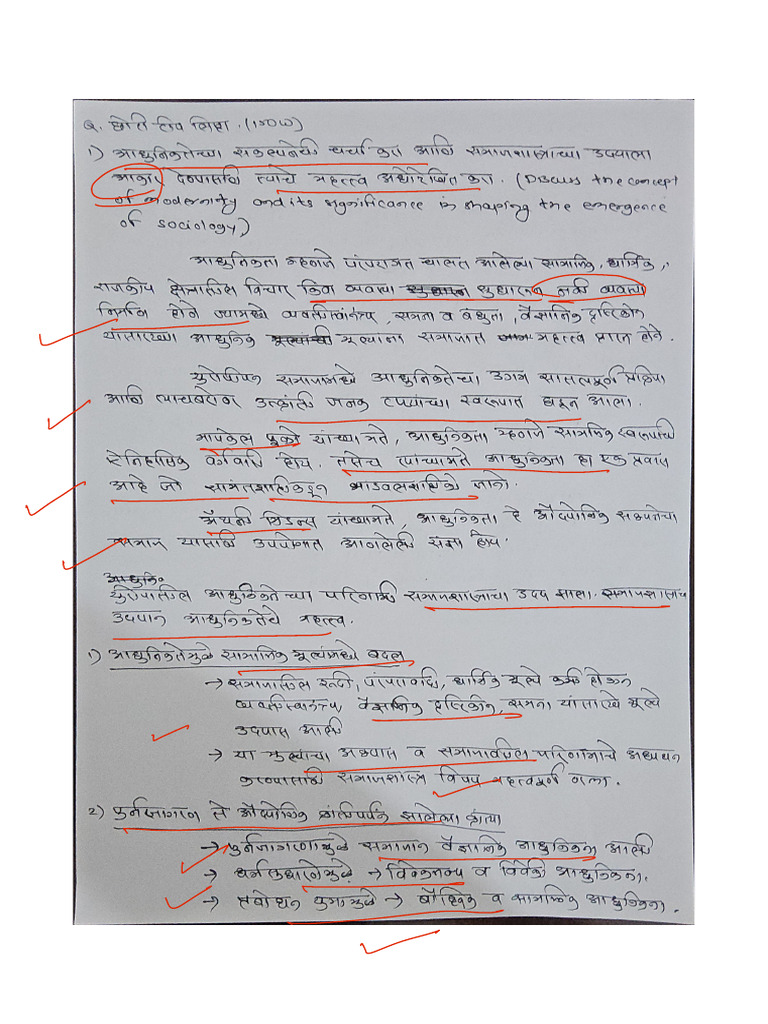 Q. छोटी टीप लिहा. (150W)
1) आधुनिकतेच्या संकल्पनेची चर्चा करा आणि समाजशास्त्राच्या उदयाला
आकार देण्यासाठी त्याचे महत्त्व अधोरेखित करा. (Discuss the concept
of modernity and its significance in shaping the emergence
of sociology)
आधुनिकता म्हणजे परंपरागत चालत आलेल्या सामाजिक, धार्मिक,
राजकीय क्षेत्रातील विचार किंवा व्यवस्था सुधारून नवी व्यवस्था
निर्माण होणे ज्यामध्ये व्यक्तीस्वातंत्र्य, समता व बंधुता, वैज्ञानिक दृष्टिकोन
यांसारख्या आधुनिक मूल्यांना समाजात महत्त्व प्राप्त होते.
युरोपीयन समाजामध्ये आधुनिकतेचा उगम सातत्यपूर्ण प्रक्रिया
आणि त्याचबरोबर उत्क्रांती जनक टप्प्यांच्या स्वरूपात होऊन आला.
मायकेल फुको यांच्यामते, आधुनिकता म्हणजे सामाजिक स्वरूपाचे
ऐतिहासिक वर्गवारी होय. तसेच त्यांच्यामते आधुनिकता हा एक प्रवास
आहे जो सामंतशाहीकडून भांडवलशाहीकडे जातो.
अँथनी गिडन्स यांच्यामते, आधुनिकता हे औद्योगिक सभ्यतेचा
समाज यासाठी उपयोगात आणलेली संज्ञा होय.
आधुनिक
युरोपातील आधुनिकतेच्या परिणामी समाजशास्त्राचा उदय झाला. समाजशास्त्राच्या
उदयात आधुनिकतेचे महत्त्व.
1) आधुनिकतेमुळे सामाजिक मूल्यांमध्ये बदल
→ समाजातील रूढी, परंपरावादी, धार्मिक मूल्ये कमी होऊन
व्यक्तीस्वातंत्र्य, वैज्ञानिक दृष्टिकोन, समता यांसारखे मूल्ये
उदयास आली
→ या मूल्यांचा अभ्यास व समाजावरील परिणामाचे अध्ययन
करण्यासाठी समाजशास्त्र विषय महत्त्वपूर्ण ठरला.
2) पुर्नजागरण ते औद्योगिक क्रांतीपर्यंत झालेल्या क्रांत्या
→ पुर्नजागरणामुळे समाजात वैज्ञानिक आधुनिकता आली
→ धर्मसुधारणेमुळे → विवेकजन्य व विवेकी आधुनिकता.
→ प्रबोधन युगामुळे → बौद्धिक व सामाजिक आधुनिकता.